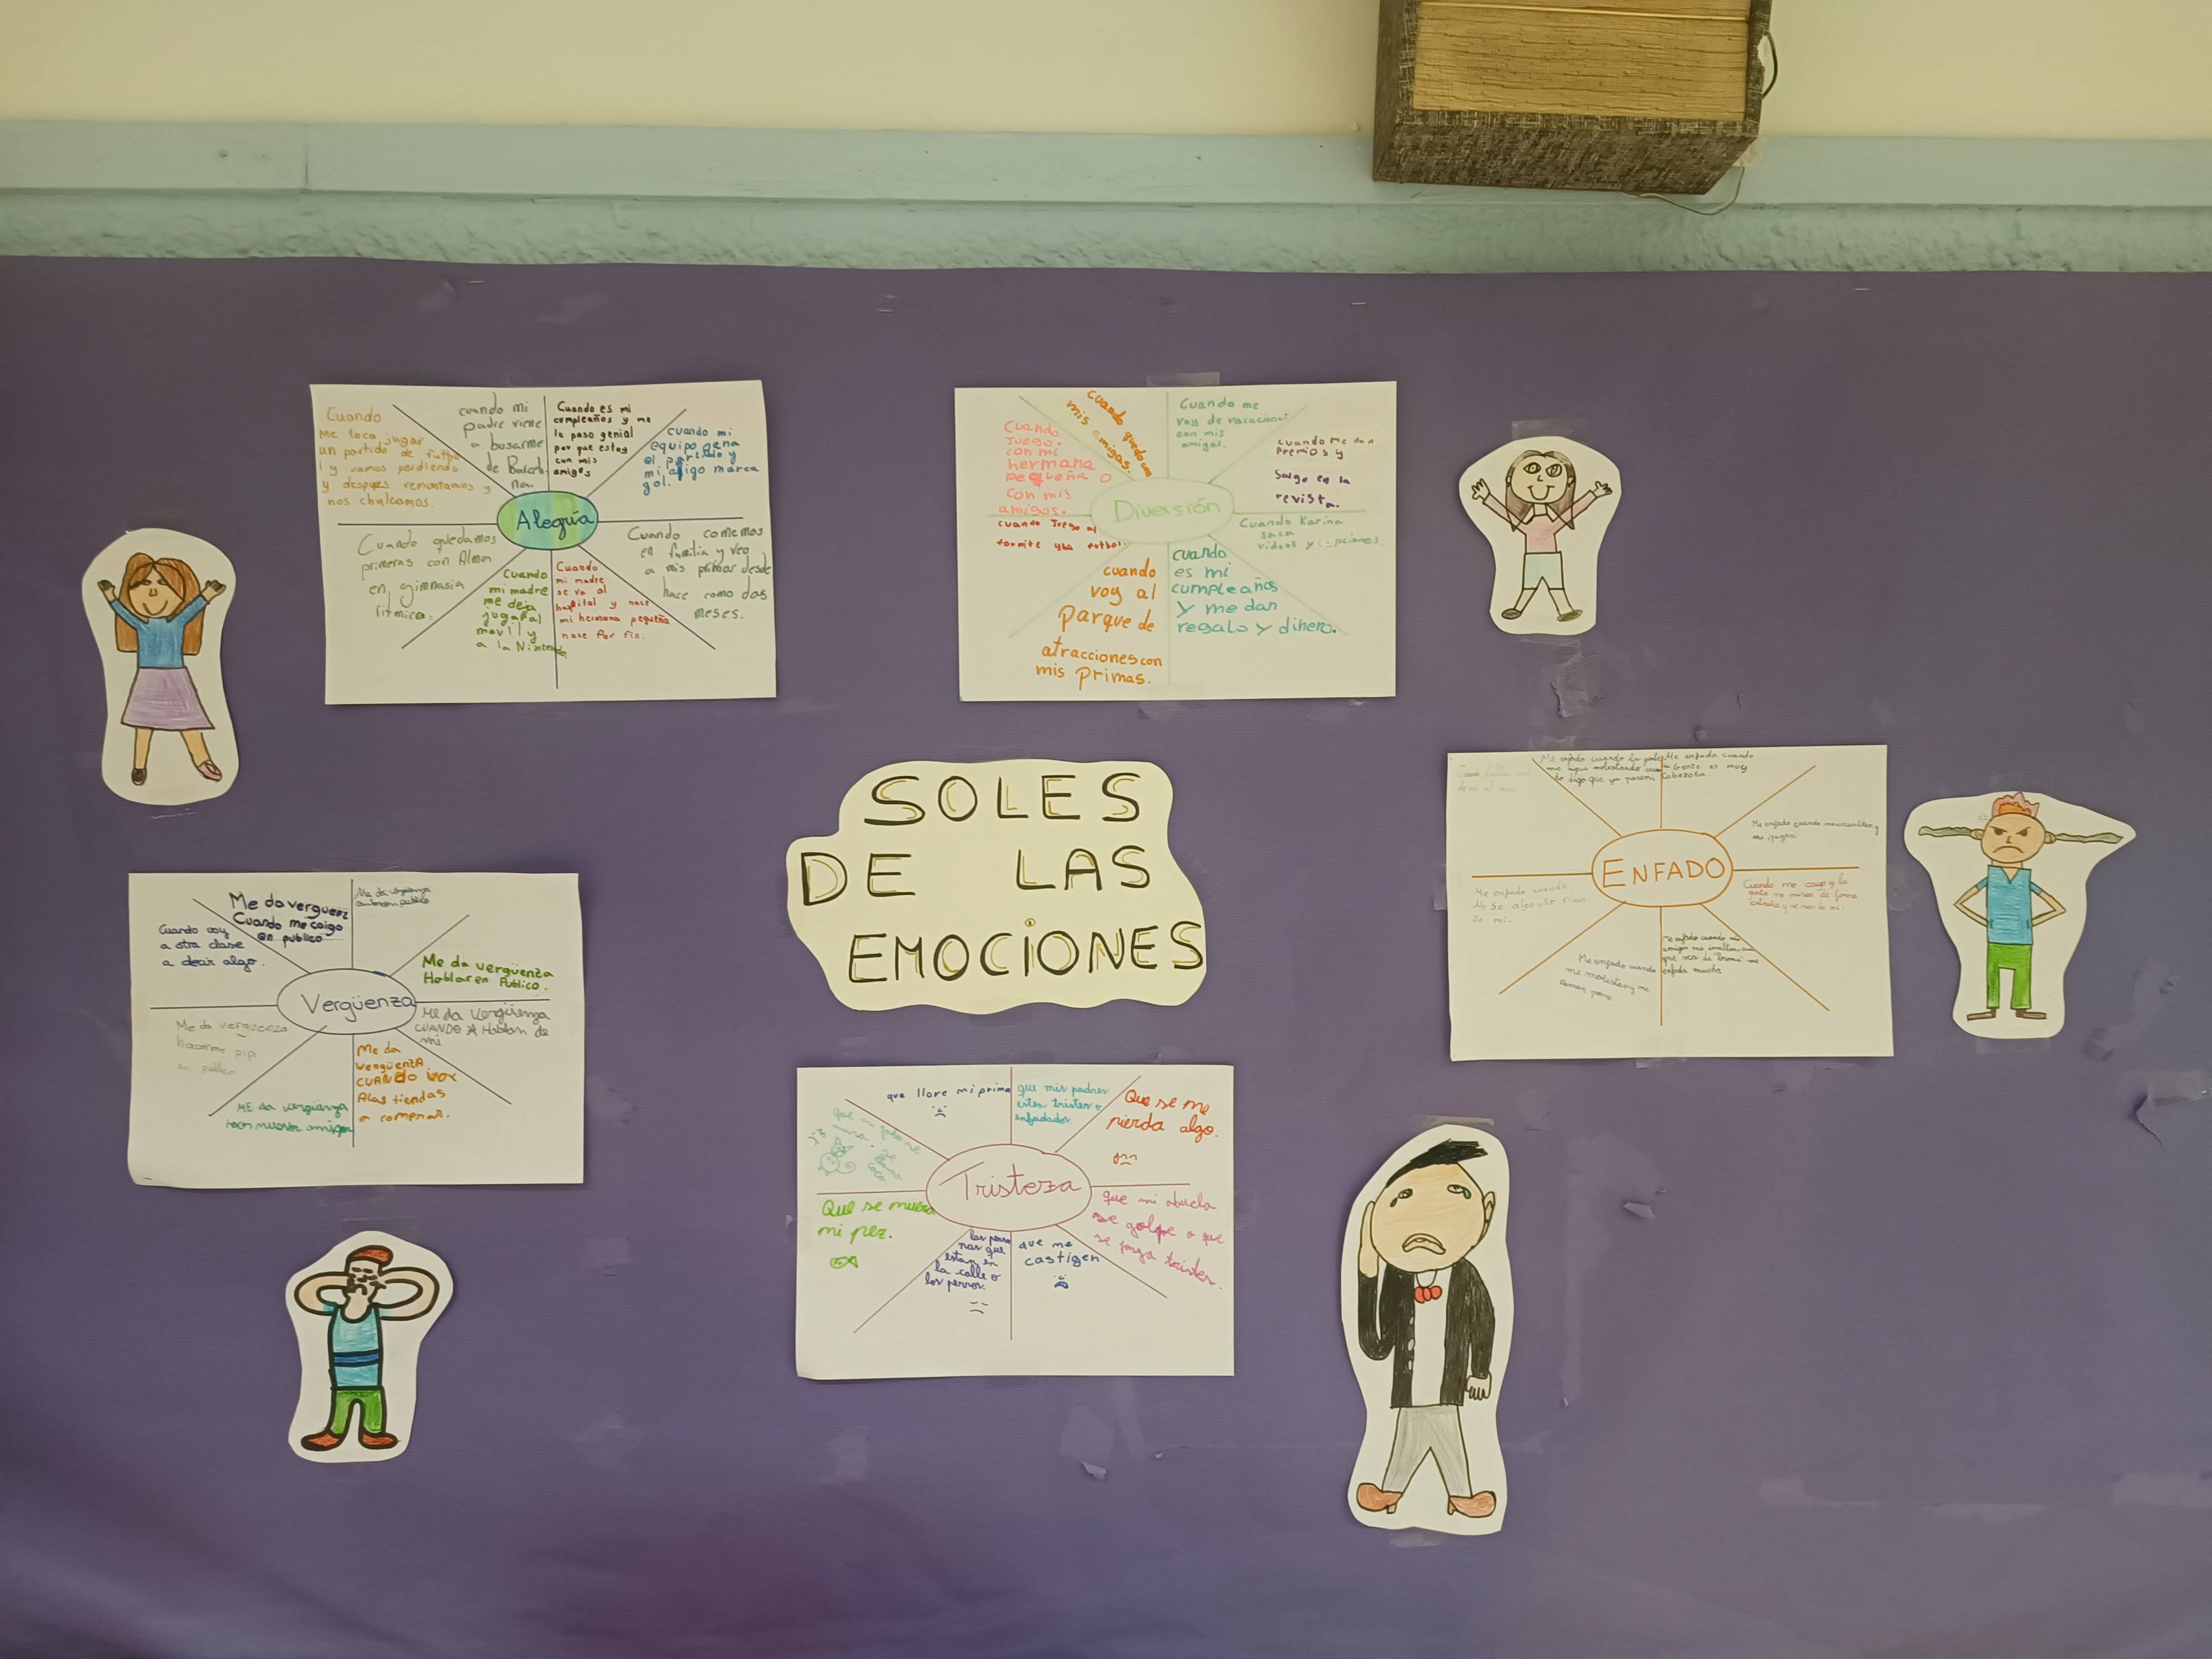 Cuando
Me toca jugar
un partido de futbo
l y vamos perdiendo
y despues remontamos y
nos chuleamos.
cuando mi
padre viene
a buscarme
de Barcelo
na.
Cuando es mi
compleaños y me
lo paso genial
por que estoy
con mis
amigos
cuando mi
equipo gana
el partido y
mi amigo marca
gol.
Alegría
Cuando quedamos
primeras con Alma
en gimnasia
ritmica.
Cuando
mi madre
me deja
jugar al
movil y
a la Nintendo
Cuando
mi madre
se va al
hospital y nace
mi hermana pequeña
nase por fin.
Cuando comemos
en familia y veo
a mis primas desde
hace como dos
meses.
Cuando
juego.
con mi
hermana
pequeña o
con mis
amigos.
Cuando quedo con
mis amigas.
Cuando me
voy de vacacions
con mis
amigas.
cuando me dan
premios y
salgo en la
revista.
Diversión
cuando Juego al
fornite y la futbol.
cuando
voy al
parque de
atracciones con
mis primas.
cuando
es mi
cumpleaños
y me dan
regalo y dinero.
Cuando Karina
saca
videos y canciones.
SOLES
DE LAS
EMOCIONES
Me enfada cuando la gente
me sigue molestando cuando
le digo que ya paren
Me enfada cuando
la gente es muy
cabezota
Me enfado cuando me insultan y
me pegan
ENFADO
Me enfado cuando
digo algo y se rian
de mi.
Cuando me caigo y la
gente me mira de forma
extraña y se rien de mi.
Me enfado cuando
me molestan y me
Me enfado cuando mis
amigos me insultan, aun
que sea de "broma" me
enfada mucho
Cuando voy
a otra clase
a decir algo.
Me da verguenz
Cuando me caigo
en publico
Me da vergüenza
en publico
Me da vergüenza
Hablar en Publico.
Vergüenza
Me da verguenza
hacerme pipi
en publico
ME da vergüenza
tener nuevos amigos
Me da
vergüenza
CUANDO voy
A las tiendas
a comprar.
ME da Vergüenza
CUANDO Hablan de
mi
que llore mi prima
que mis padres
esten tristes o
enfadados.
Que se me
pierda algo.
Tristeza
Que se muera
mi pez.
las perso
nas que
estan en
la calle o
los perros.
que me
castigen
que mi abuela
se golpe o que
se ponga triste.